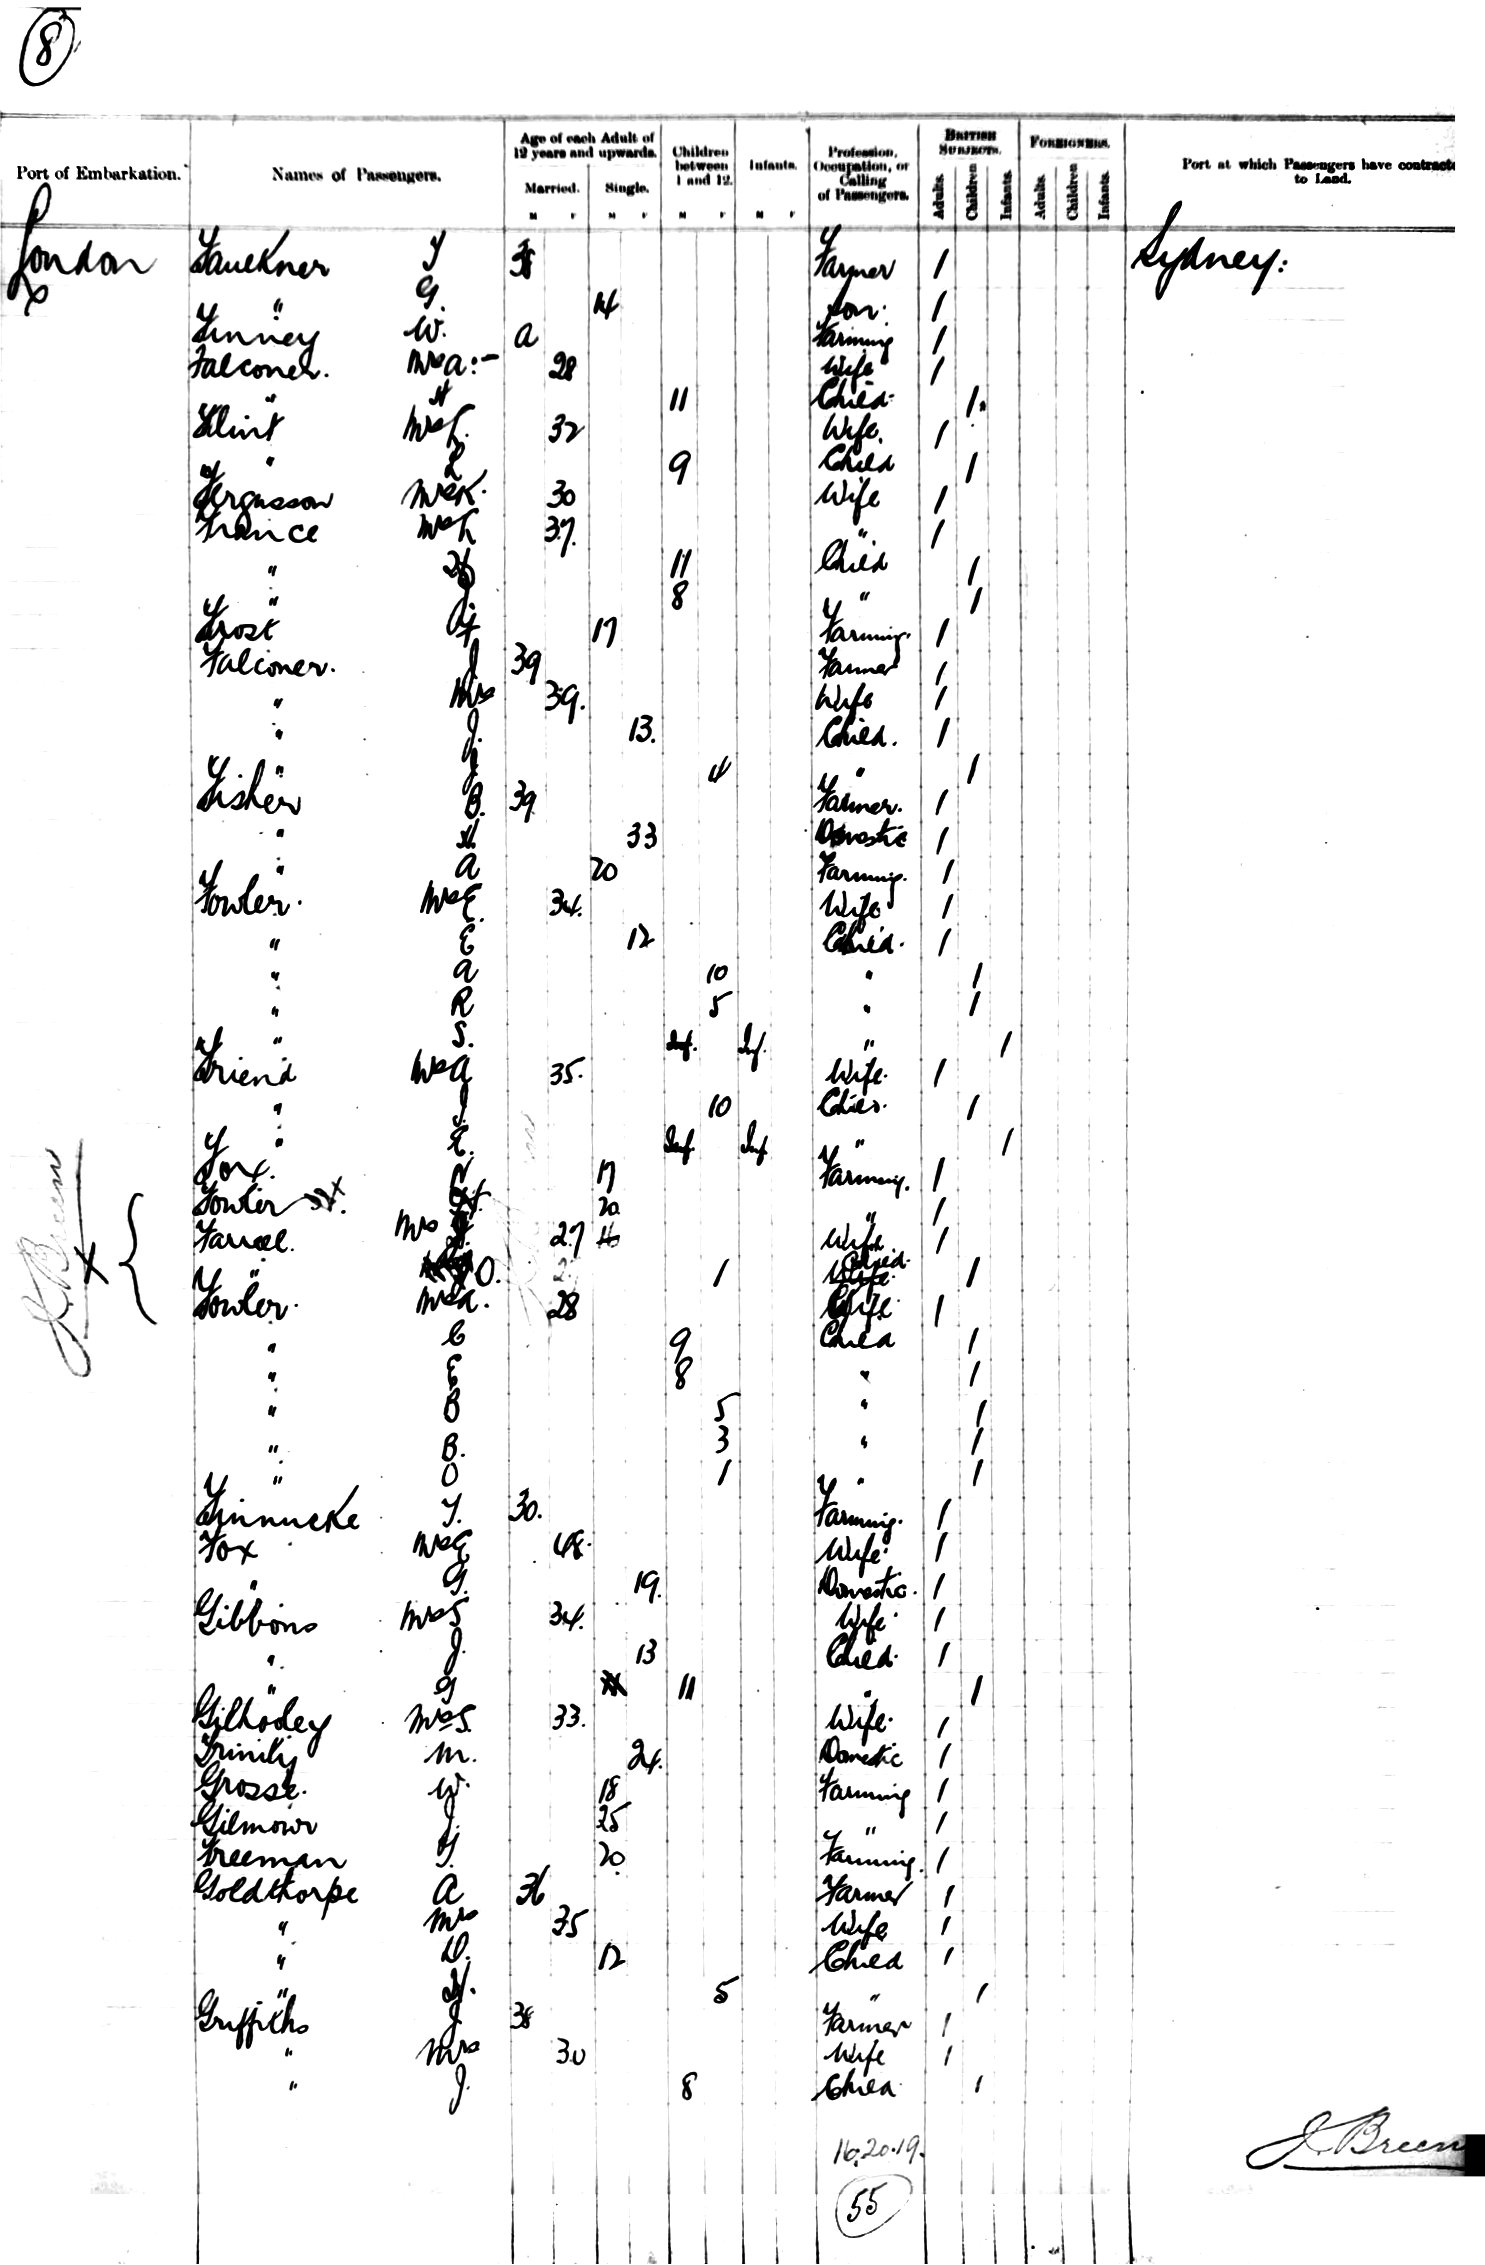 8
Port of Embarkation. Names of Passengers. Age of each Adult of 12 years and upwards. Married. Single. M F M F Children between 1 and 12. M F Infants. M F Profession, Occupation, or Calling of Passengers. BRITISH SUBJECTS. Adults. Children Infants. FOREIGNERS. Adults. Children Infants. Port at which Passengers have contracte to Land.
London Faulkner 38 Farmer 1 Sydney:
x " G. 14 Son. 1
Finney W. a Farming 1
Falconer. Mrs A:- 28 Wife 1
" H 11 Child 1
Flint Mrs 32 Wife. 1
" L 9 Child 1
Fergusson Mrs K. 30 Wife 1
France Mrs 37. " 1
" 11 Child 1
" 8 " 1
Frost 17 Farming. 1
Falconer. J 39 Farmer 1
" Mrs 39. Wife 1
" J. 13. Child. 1
" 4 " 1
Fisher B. 39 Farmer. 1
" H. 33 Domestic 1
" A 20 Farming. 1
Fowler. Mrs E. 34. Wife 1
" E 12 Child. 1
" A 10 " 1
" R 5 " 1
" S. Inf. Inf. " 1
Friend Mrs A 35. Wife. 1
" 10 Child. 1
" E. Inf. Inf " 1
Fox. 17 Farming. 1
Fowler 20. " 1
J. Breen x Farrell. Mrs 27 Wife 1
" O. 1 Child. 1
Fowler. Mrs A. 28 Wife 1
" C 9 Child 1
" E 8 " 1
" B 5 " 1
" B. 3 " 1
" O 1 " 1
Finnucke 30. Farming. 1
Fox Mrs E 48. Wife. 1
" G. 19. Domestic. 1
Gibbons Mrs S 34. Wife. 1
" J. 13 Child. 1
" G 11 " 1
Gilhodey Mrs S. 33. Wife. 1
M. 24. Domestic 1
Grosse. W. 18 Farming 1
Gilmour J. 25 " 1
Freeman 20. Farming. 1
Goldthorpe A 36 Farmer 1
" Mrs 35 Wife 1
" D. 12 Child 1
" H. 5 " 1
Griffiths J 38 Farmer 1
" Mrs 30 Wife 1
" J. 8 Child. 1
16.20.19.
J. Breen
55